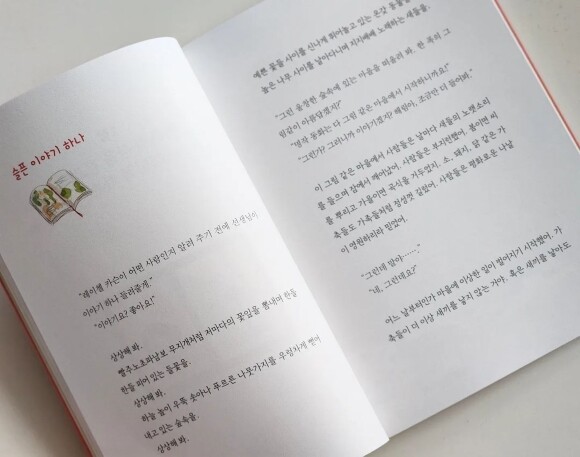 슬픈 이야기 하나
"레이첼 카슨이 어떤 사람인지 알려 주기 전에 선생님이
이야기 하나 들려줄게."
"이야기요? 좋아요!"
상상해 봐.
빨주노초파남보 무지개처럼 저마다의 꽃잎을 뽐내며 한들
한들 피어 있는 들꽃을.
상상해 봐.
하늘 높이 우뚝 솟아나 푸르른 나뭇가지를 우렁차게 뻗어
내고 있는 숲속을.
상상해 봐.
예쁜 꽃들 사이를 신나게 뛰어놀고 있는 온갖 동물들
높은 나무 사이를 날아다니며 지지배배 노래하는 새들을.
"그런 울창한 숲속에 있는 마을을 떠올려 봐. 한 폭의 그
림같이 아름답겠지?"
"명작 동화는 다 그림 같은 마을에서 시작하니까요!"
"그런가? 그러니까 이야기겠지? 해림아, 조금만 더 들어봐."
이 그림 같은 마을에서 사람들은 날마다 새들의 노랫소리
를 들으며 잠에서 깨어났어. 사람들은 부지런했어. 봄이면 씨
를 뿌리고 가을이면 곡식을 거두었지. 소, 돼지, 닭 같은 가
축들도 가족들처럼 정성껏 길렀어. 사람들은 평화로운 나날
이 영원하리라 믿었어.
"그런데 말야……."
"네, 그런데요?"
어느 날부터인가 마을에 이상한 일이 벌어지기 시작했어. 가
축들이 더 이상 새끼를 낳지 않는 거야. 혹은 새끼를 낳아도